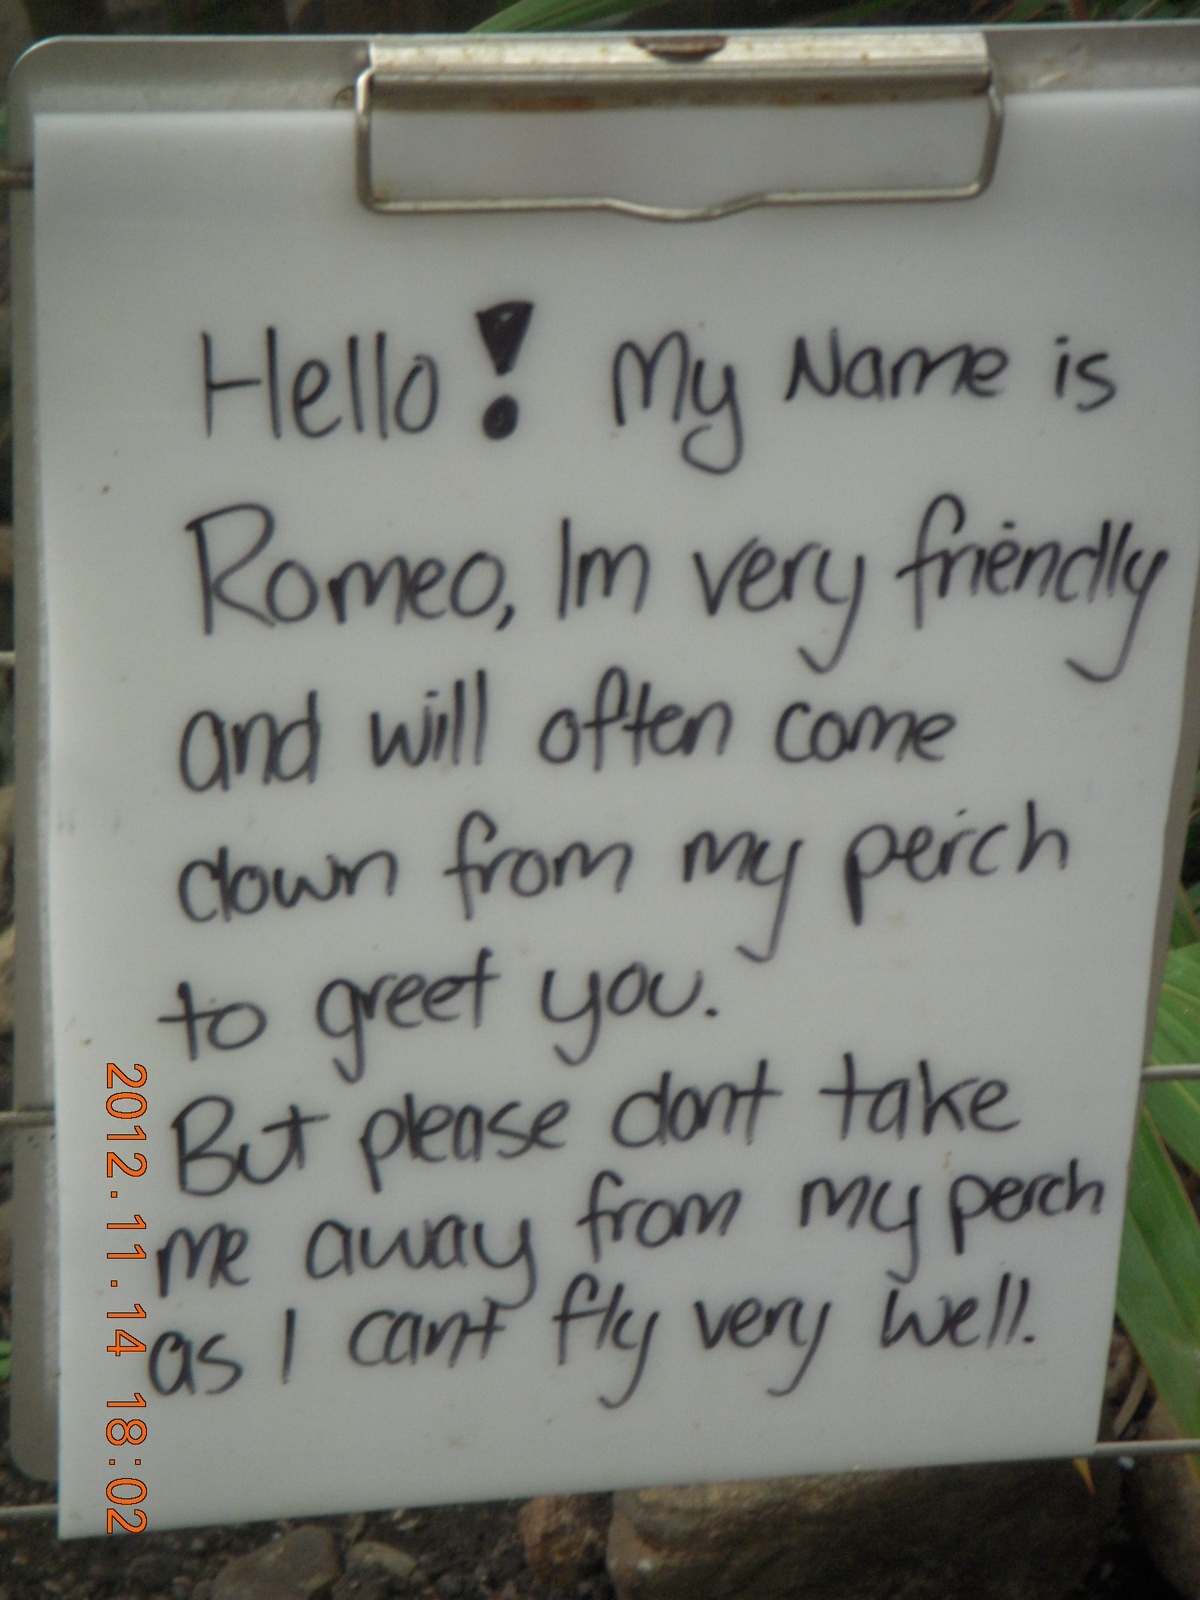 Hello! My Name is
Romeo, Im very friendly
and will often come
down from my perch
to greet you.
But please dont take
me away from my perch
as I cant fly very well.
2012.11.14 18:02